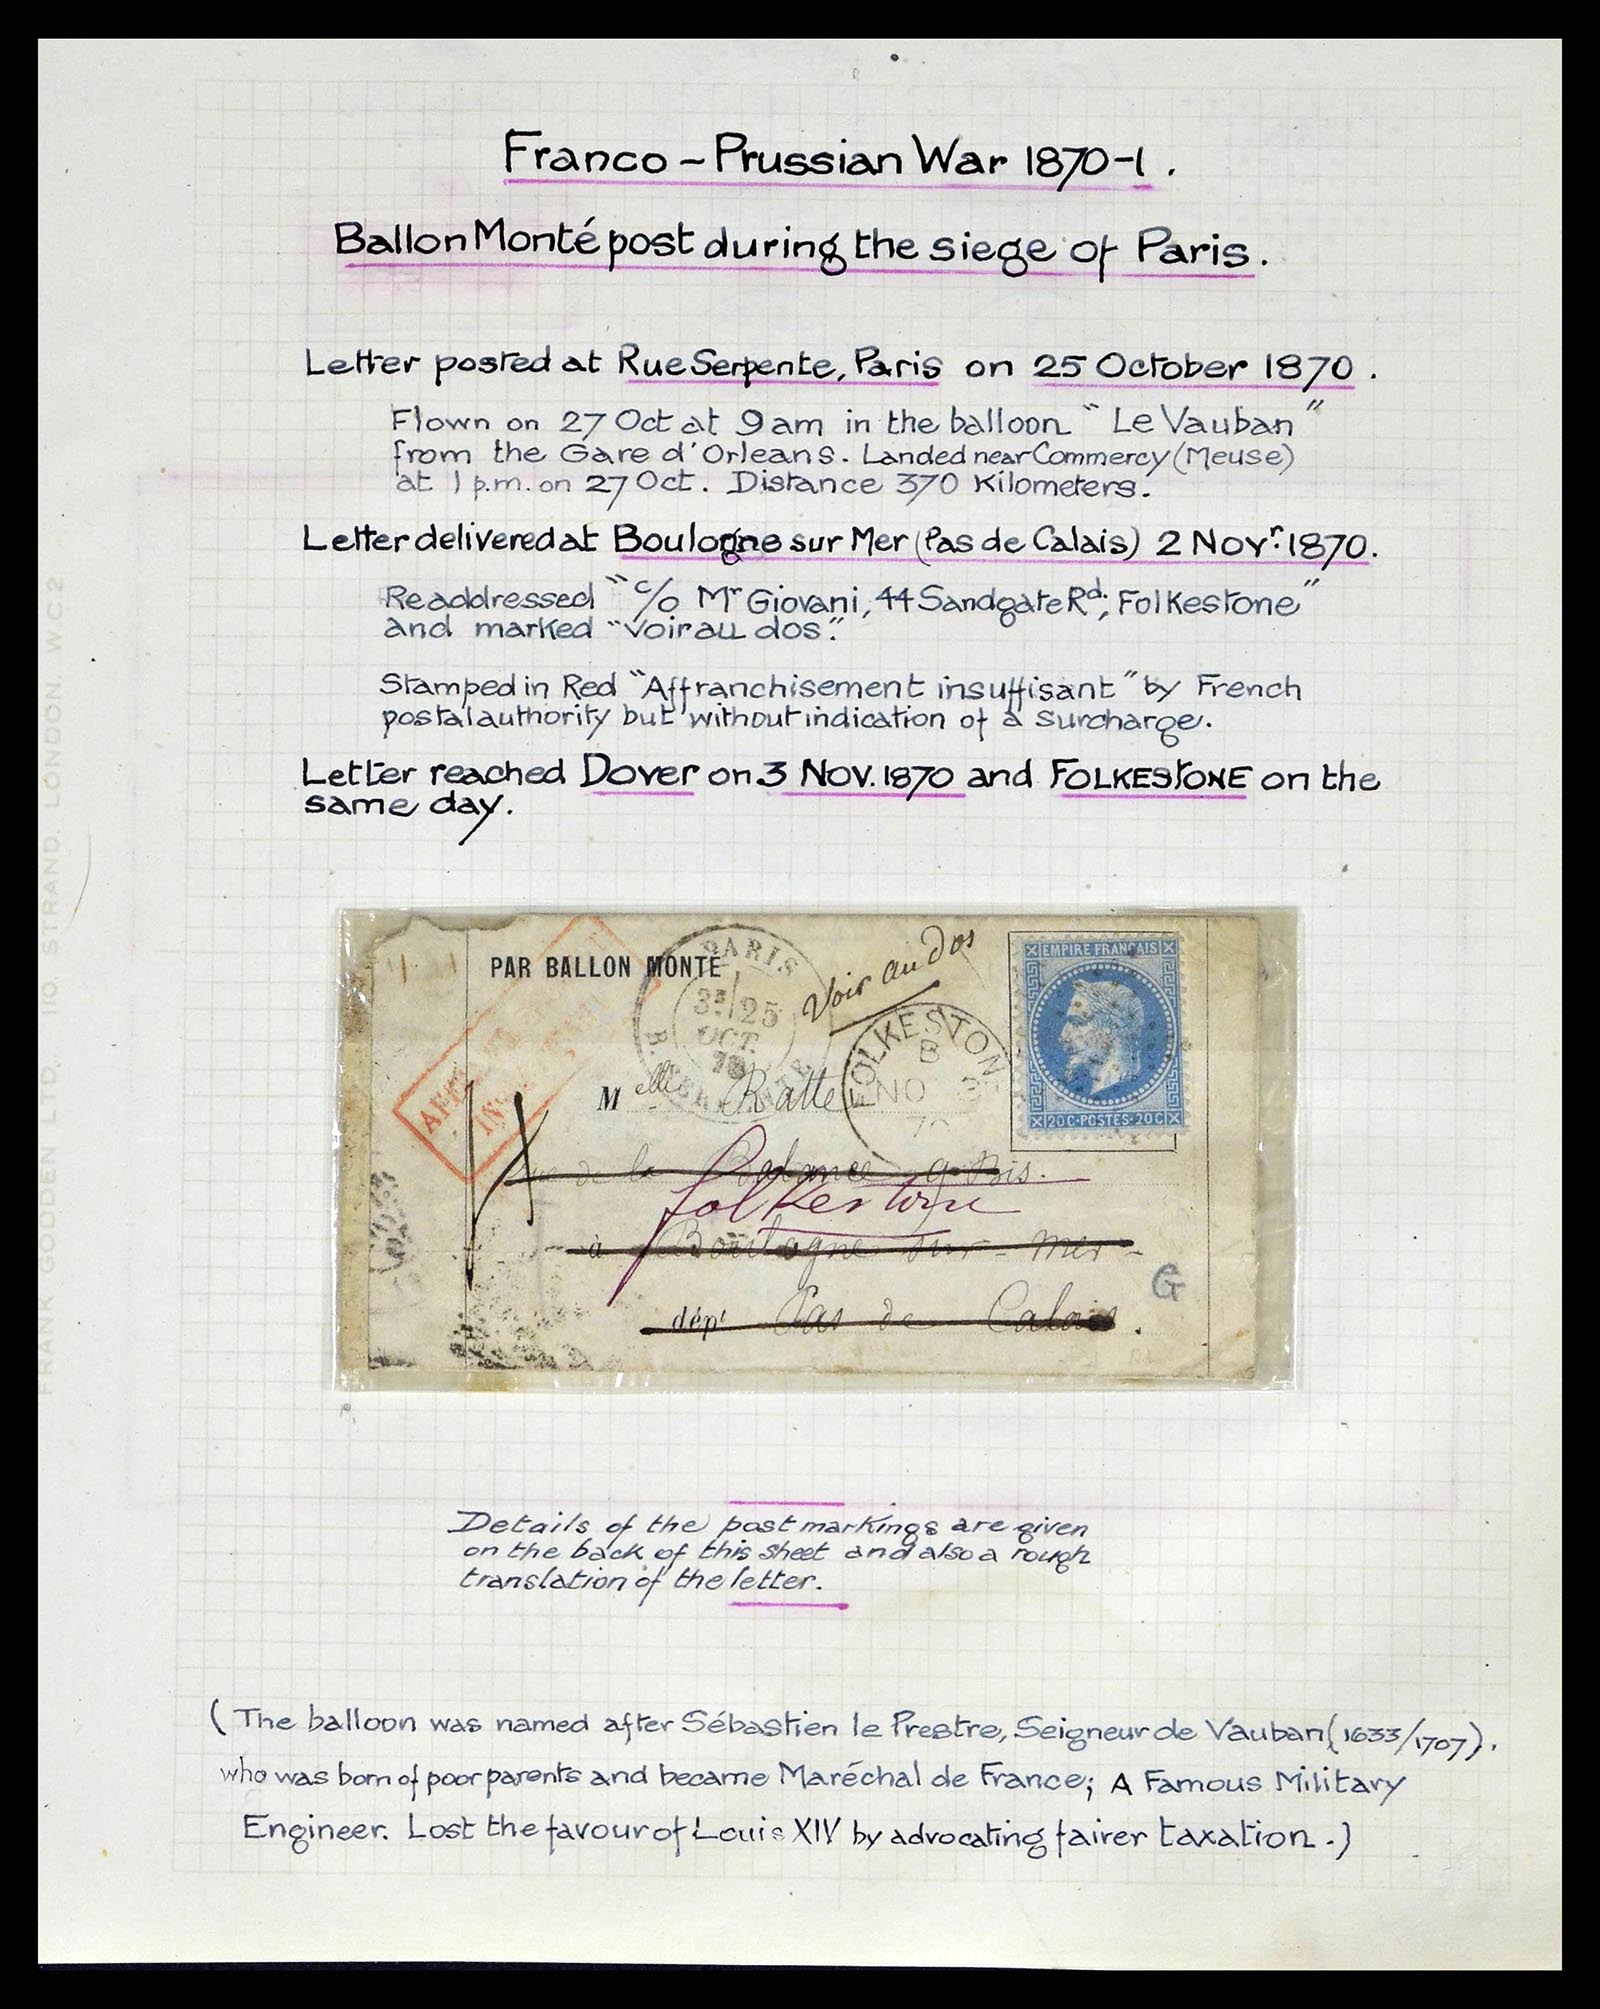 Franco - Prussian War 1870-1.
Ballon Monté post during the siege of Paris.
Letter posted at Rue Serpente, Paris on 25 October 1870.
Flown on 27 Oct at 9am in the balloon "Le Vauban"
from the Gare d'Orleans. Landed near Commercy (Meuse)
at 1 p.m. on 27 Oct. Distance 370 Kilometers.
Letter delivered at Boulogne sur Mer (Pas de Calais) 2 Novr. 1870.
Readdressed "c/o Mr Giovani, 44 Sandgate Rd, Folkestone"
and marked "Voir au dos".
Stamped in Red "Affranchisement insuffisant" by French
postal authority but without indication of a surcharge.
Letter reached Dover on 3 Nov. 1870 and FOLKESTONE on the
same day.
PAR BALLON MONTÉ
PARIS
3E/25
OCT.
70
Voir au Dos
EMPIRE FRANÇAIS
20C·POSTES·20C
FOLKESTONE
B
NO 3
70
AFF
INS
Melle Ratte
Rue de la Balance 9 Bis.
folkestone
à Boulogne sur-mer-
G
dépt Pas de Calais.
Details of the post markings are given
on the back of this sheet and also a rough
translation of the letter.
(The balloon was named after Sébastien le Prestre, Seigneur de Vauban (1633/1707),
who was born of poor parents and became Maréchal de France; A Famous Military
Engineer. Lost the favour of Louis XIV by advocating fairer taxation.)
FRANK GODDEN LTD. 110, STRAND, LONDON, WC2